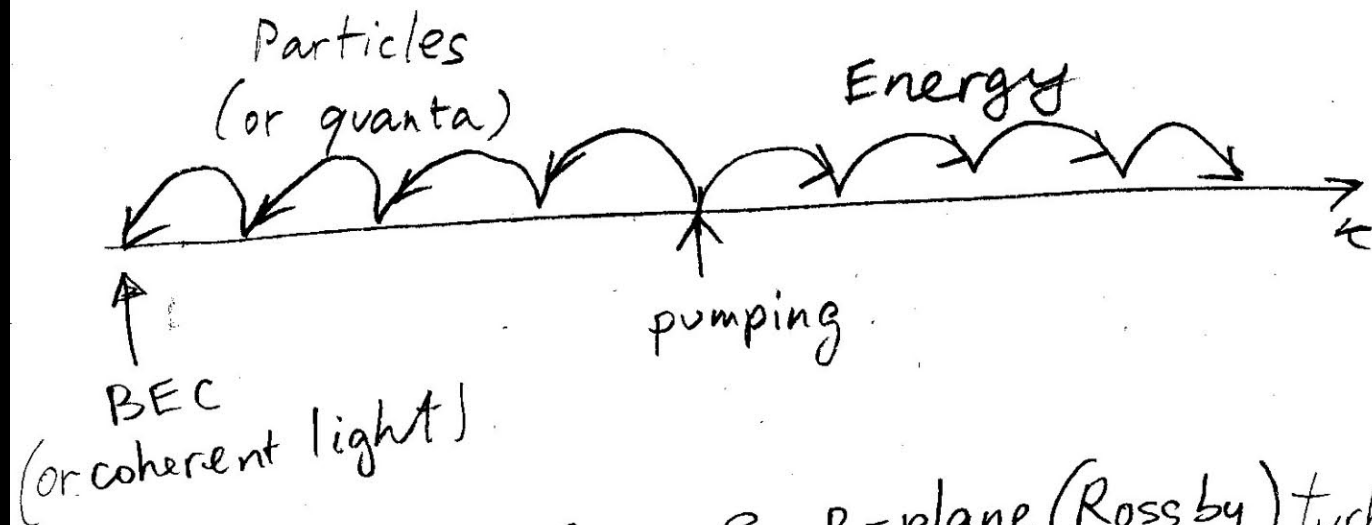 Particles
(or quanta)
Energy
k
pumping
BEC
(or coherent light)
β-plane (Rossby)